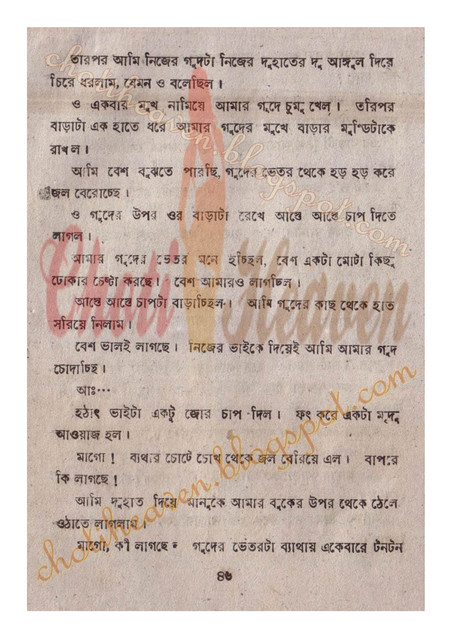 তারপর আমি নিজের গুদটা নিজের দুহাতের দু আঙ্গুল দিয়ে
চিরে ধরলাম, যেমন ও বলেছিল।
ও একবার মুখ নামিয়ে আমার গুদে চুমু খেল। তারপর
বাড়াটা এক হাতে ধরে আমার গুদের মুখে বাড়ার মুন্ডিটাকে
রাখল।
আমি বেশ বুঝতে পারছি, গুদের ভেতর থেকে হড় হড় করে
জল বেরোচ্ছে।
ও গুদের উপর ওর বাড়াটা রেখে আস্তে আস্তে চাপ দিতে
লাগল।
আমার গুদের ভেতর মনে হচ্ছিল, বেশ একটা মোটা কিছু
ঢোকার চেষ্টা করছে। বেশ আমারও লাগছিল।
আস্তে আস্তে চাপটা বাড়াচ্ছিল। আমি গুদের কাছ থেকে হাত
সরিয়ে নিলাম।
বেশ ভালই লাগছে। নিজের ভাইকে দিয়েই আমি আমার গুদ
চোদাচ্ছি।
আঃ…
হঠাৎ ভাইটা একটু জোর চাপ দিল। ফৎ করে একটা মৃদু
আওয়াজ হল।
মাগো! ব্যথার চোটে চোখ থেকে জল বেরিয়ে এল। বাপরে
কি লাগছে!
আমি দুহাত দিয়ে মানুকে আমার বুকের উপর থেকে ঠেলে
ওঠাতে লাগলাম।
মাগো, কী লাগছে গুদের ভেতরটা ব্যাথায় একেবারে টনটন
৪৬
Choti Heaven
chotiheaven.blogspot.com
chotiheaven.blogspot.com